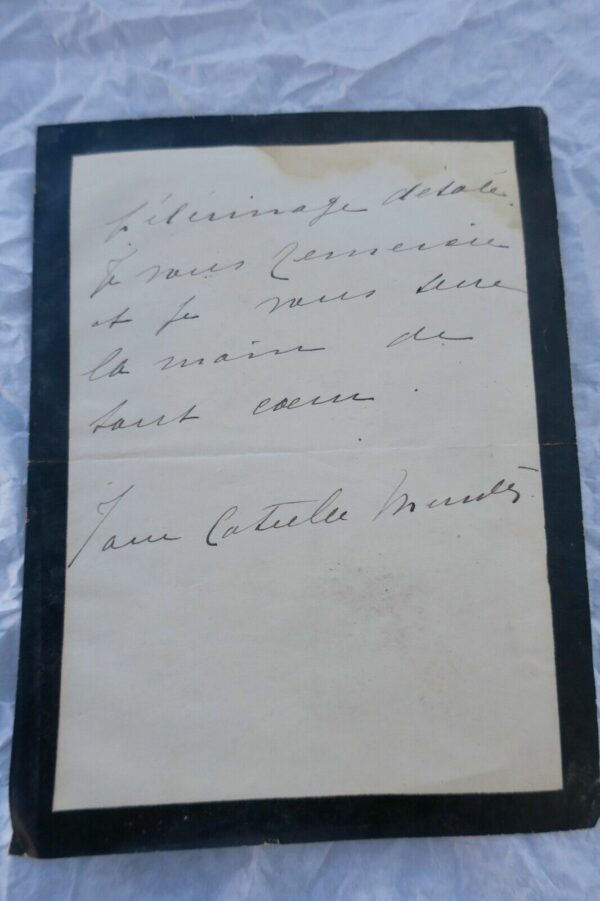 pélerinage désolé.
Je vous remercie
et je vous serre
la main de
tout cœur.
Jane Catulle Mendès